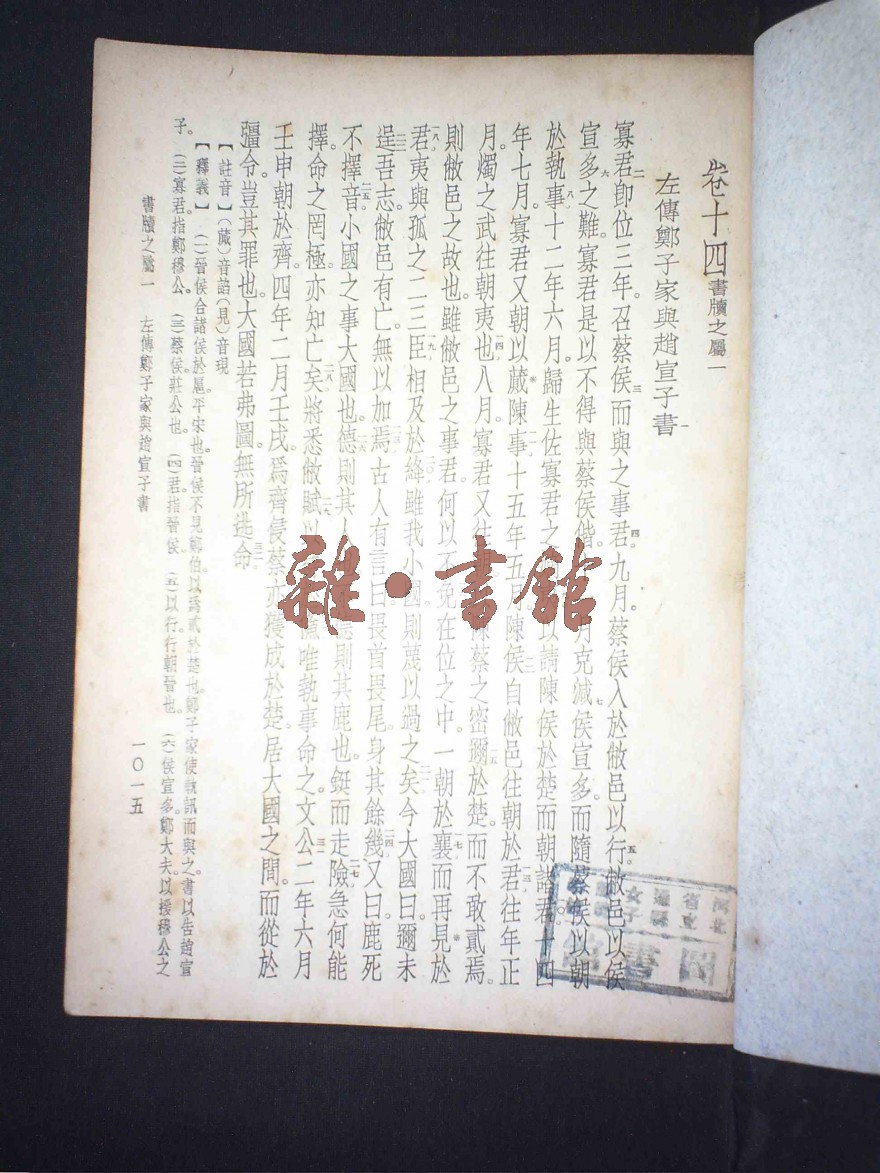 卷十四 書牘之屬一
左傳鄭子家與趙宣子書 一
寡君卽位三年。召蔡侯而與之事君。九月。蔡侯入於敝邑以行。敝邑以侯
宣多之難。寡君是以不得與蔡侯偕。月克減侯宣多。而隨蔡侯以朝
於執事。十二年六月。歸生佐寡君之以請陳侯於楚而朝諸君。十四
年七月。寡君又朝以蕆陳事。十五年五月。陳侯自敝邑往朝於君。往年正
月。燭之武往朝夷也。八月。寡君又往陳蔡之密邇於楚。而不敢貳焉。
則敝邑之故也。雖敝邑之事君。何以不免。在位之中。一朝於襄。而再見於
君。夷與孤之二三臣。相及於絳。雖我小國。則蔑以過之矣。今大國曰。邇未
逞吾志。敝邑有亡。無以加焉。古人有言曰。畏首畏尾。身其餘幾。又曰。鹿死
不擇音。小國之事大國也。德則其人則其鹿也。鋌而走險。急何能
擇。命之罔極。亦知亡矣。將悉敝賦以唯執事命之。文公二年六月
壬申。朝於齊。四年二月壬戌。爲齊侵蔡。亦獲成於楚。居大國之間。而從於
彊令。豈其罪也。大國若弗圖。無所逃命。
【註音】（蕆）音諂（見）音現
【釋義】（一）晉侯合諸侯於扈。平宋也。晉侯不見鄭伯。以爲貳於楚也。鄭子家使執訊而與之書。以告趙宣
子。（二）寡君。指鄭穆公。（三）蔡侯。莊公也。（四）君。指晉侯。（五）以行。行朝晉也。（六）侯宣多。鄭大夫。以援穆公之
書牘之屬一 左傳鄭子家與趙宣子書
一〇一五
雜·書館
河北
省立
通縣
女子
圖書館